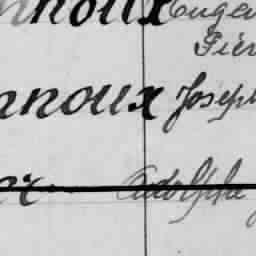 nnoux Eugen
Pier
nnoux Joseph
er Adolphe